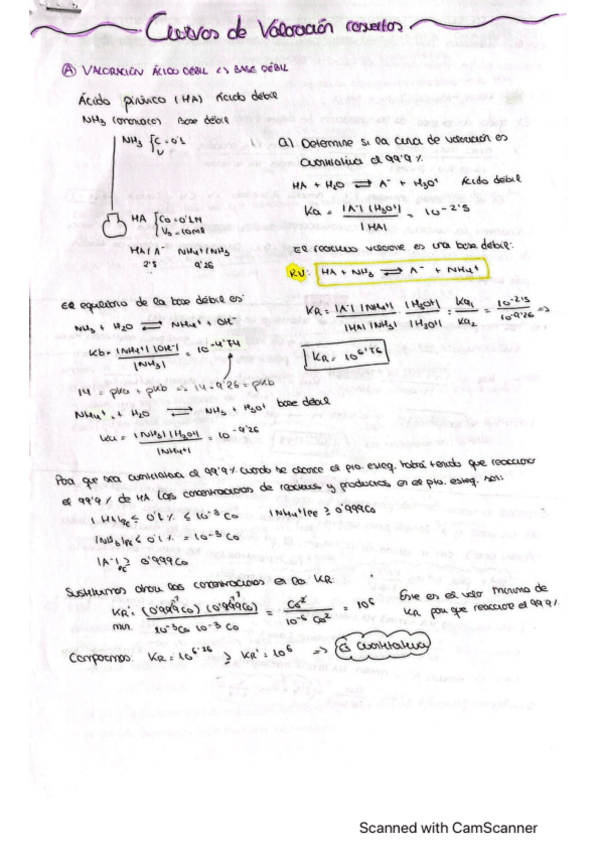 Curvas de Valoración resueltas
Ⓐ VALORACIÓN ÁCIDO DÉBIL ↔ BASE DÉBIL
Ácido pirúvico (HA) Ácido débil
NH3 (amoniaco) Base débil
NH3 { C = 0'1
V
HA { Co = 0'1M
Vo = 10ml
HA/A- NH4+/NH3
2'5 9'26
a) Determine si la curva de valoración es
cuantitativa al 99'9 %
HA + H2O ⇌ A- + H3O+ Ácido débil
Ka = |A-| |H3O+| / |HA| = 10-2'5
El reactivo valorante es una base débil:
RV: HA + NH3 ⇌ A- + NH4+
El equilibrio de la base débil es:
NH3 + H2O ⇌ NH4+ + OH-
Kb = |NH4+| |OH-| / |NH3| = 10-4'74
14 = pKa + pKb => 14 - 9'26 = pKb
NH4+ + H2O ⇌ NH3 + H3O+ base débil
Ka = |NH3| |H3O+| / |NH4+| = 10-9'26
KR = |A-| |NH4+| / |HA| |NH3| · |H3O+| / |H3O+| = Ka1 / Ka2 = 10-2'5 / 10-9'26 =>
KR = 106'76
Para que sea cuantitativa al 99'9% cuando se alcance el pto. esteq. habrá tenido que reaccionar
el 99'9 % de HA. Las concentraciones de reactivos y productos en el pto. esteq. son:
|HA|pe ≤ 0'1 % ≤ 10-3 Co |NH4+|pe ≥ 0'999Co
|NH3|pe ≤ 0'1 % = 10-3 Co
|A-|pe ≥ 0'999Co
Sustituimos ahora las concentraciones en la KR:
KR' min. = (0'999Co) (0'999Co) / 10-3Co 10-3 Co = Co2 / 10-6 Co2 = 106
Este es el valor mínimo de
KR para que reaccione el 99'9%
Comparamos: KR = 106'76 ≥ KR' = 106 => Es cuantitativa
Scanned with CamScanner